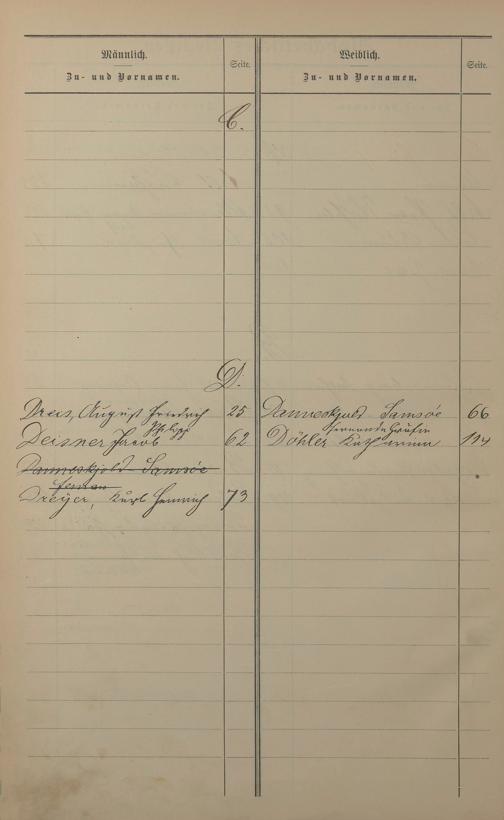 Männlich.
Zu- und Vornamen.
Seite.
Weiblich.
Zu- und Vornamen.
Seite.
C.
D.
Dreis, August Friedrich 25
Philipp
Deisner Jacob 62
Danneskjold-Samsöe
Dreyer, Kurl Heinrich 73
Danneskjold Samsöe 66
Gräfin
Döhler Katharina 114